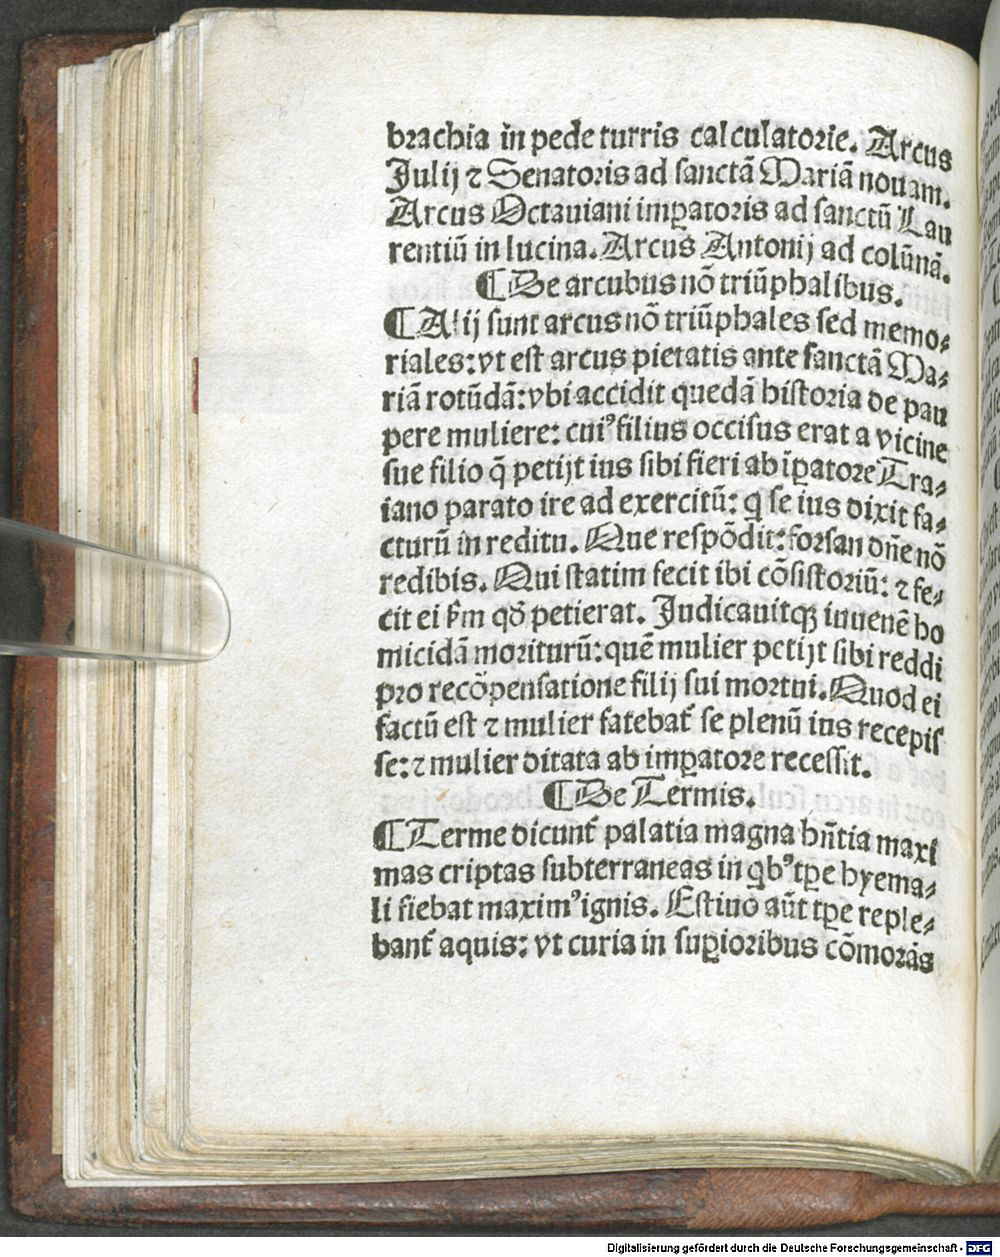 brachia in pede turris calculatorie. Arcus
Julij ⁊ Senatoris ad sanctā Mariā nouam.
Arcus Octauiani imꝑatoris ad sanctū Lau
rentiū in lucina. Arcus Antonij ad colūnā.
¶ De arcubus nō triūphalibus.
¶ Alij sunt arcus nō triūphales sed memo⸗
riales: vt est arcus pietatis ante sanctā Ma⸗
riā rotūdā: vbi accidit quedā historia de pau
pere muliere: cuiꝰ filius occisus erat a vicine
sue filio q̄ petijt ius sibi fieri ab īꝑatore Tra⸗
iano parato ire ad exercitū: q se ius dixit fa⸗
cturū in reditu. Que respōdit: forsan dn̄e nō
redibis. Qui statim fecit ibi cōsistoriū: ⁊ fe⸗
cit ei ẜm qđ petierat. Judicauitqꝫ iuuenē ho
micidā moriturū: quē mulier petijt sibi reddi
pro recōpensatione filij sui mortui. Quod ei
factū est ⁊ mulier fatebat᷑ se plenū ius recepis
se: ⁊ mulier ditata ab imꝑatore recessit.
¶ De Termis.
¶ Terme dicunt᷑ palatia magna hn̄tia maxi
mas criptas subterraneas in qbꝰ tꝑe hyema⸗
li fiebat maximꝰ ignis. Estiuo aūt tꝑe reple⸗
bant᷑ aquis: vt curia in suꝑioribus cōmorās
Digitalisierung gefördert durch die Deutsche Forschungsgemeinschaft - DFG